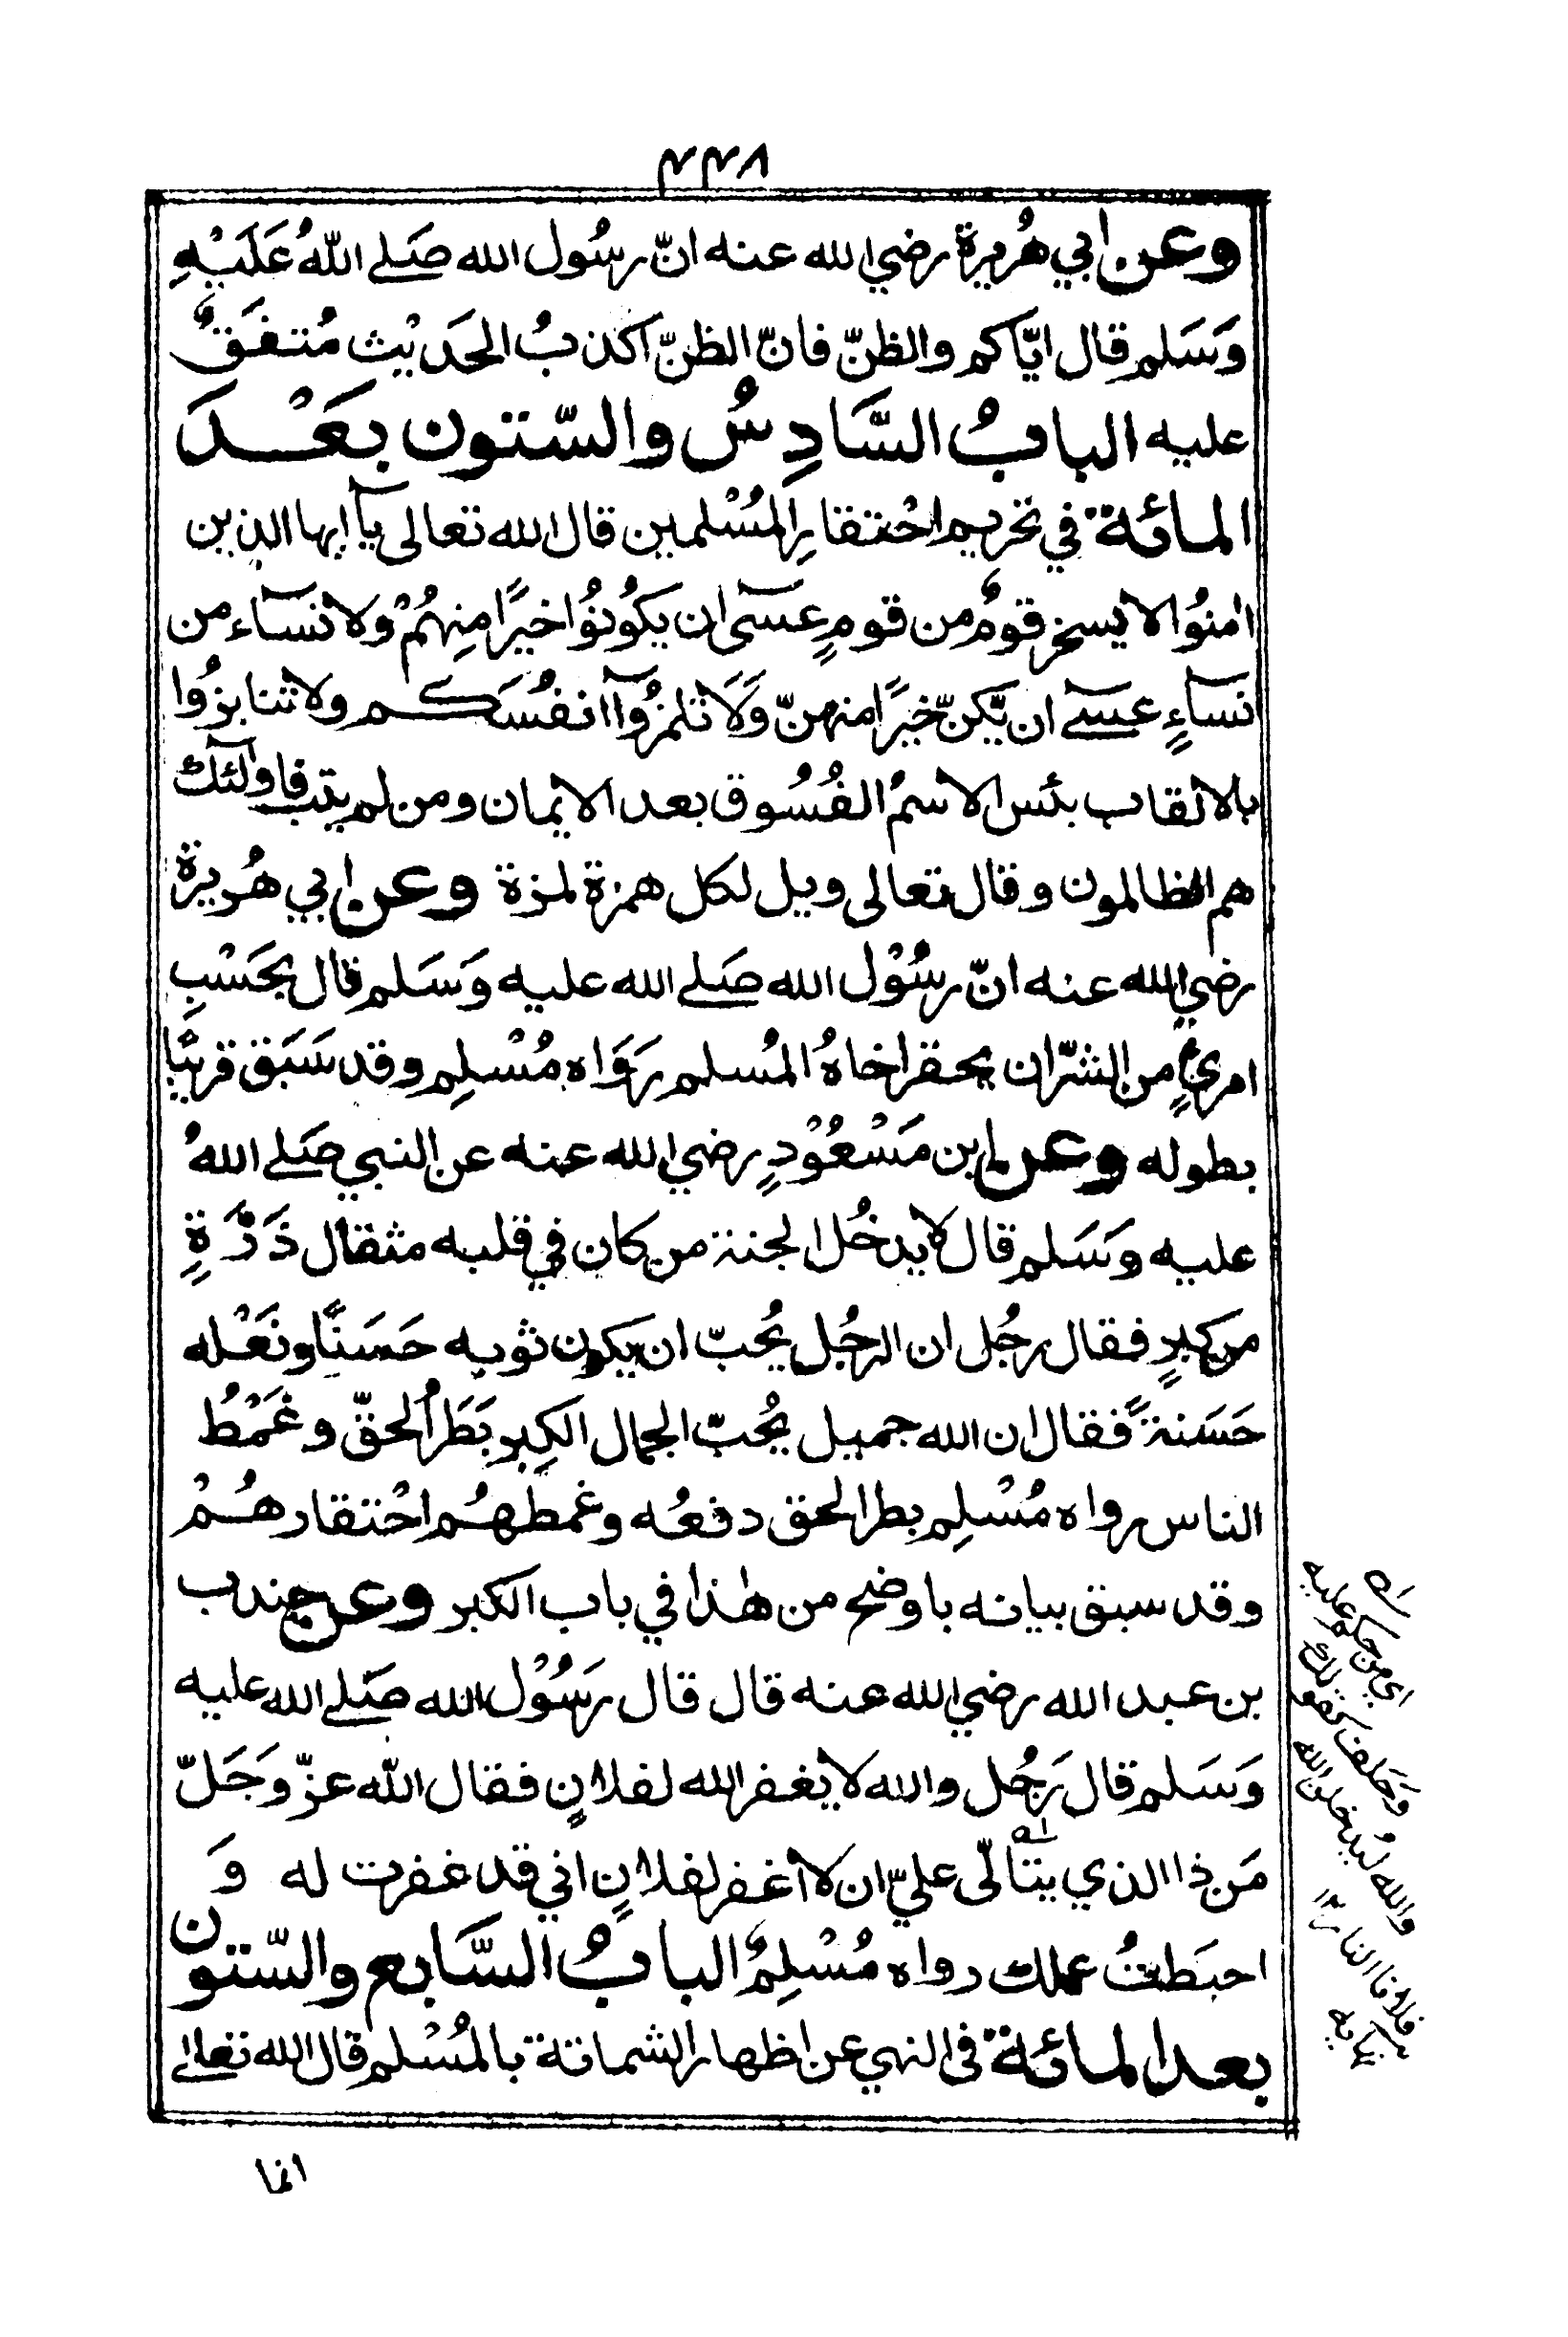 ٤٤٨
وعن ابي هُريرة رضي الله عنه انّ رسُول الله صَلے اللّٰهُ عَلَيْهِ
وَسَلم قال ايّاكم والظنّ فانّ الظنّ اكذبُ الحَديْث مُتفَقٌ
عليه البابُ السَّادِسُ والسّتون بَعْدَ
المائة في تحريم احْتقارِ المُسْلمين قال الله تعالى يآ ايها الذين
امنُوا لا يسخر قومٌ من قومٍ عسىٓ ان يكُونُوْا خيرًا مِنهُمْ ولا نسآء من
نسآءٍ عسىٓ ان يّكنّ خيرًا منهنّ وَلَا تلمزُوآ انفُسَكم ولا تنابزُوا
بالالقاب بئس الاسمُ الفُسُوق بعد الايمان ومن لم يتب فاولٓئك
هم الظالمون وقال تعالى ويل لكل همزة لمزة وعن ابي هُريرة
رضي الله عنه انّ رسُوْل الله صَلے الله عليه وَسَلم قال بحَسْبِ
امرئٍ من الشرّ ان يحقر اخاهُ المُسلم رَوَاه مُسْلِم وقد سَبَق قريبًا
بطوله وعن ابن مَسْعُوْدٍ رضي الله عنه عن النبي صَلے اللهُ
عليه وَسَلم قال لا يدخُل الجنة من كان في قلبه مثقال ذَرَّةٍ
من كبرٍ فقال رجُل ان الرجُل يُحبّ ان يكون ثوبه حَسَنًا ونَعْله
حَسَنةً فقال ان الله جميل يُحبّ الجمال الكِبر بَطَرُ الحقّ وغَمْطُ
الناس رواه مُسْلِم بطر الحق دفعُه وغمطهُم احْتقارهُمْ
وقد سبق بيانه باوضح من هٰذا في باب الكبر وعن جندب
بن عبد الله رضي الله عنه قال قال رَسُوْل الله صَلے الله عليه
وَسَلم قال رَجُل والله لا يغفر الله لفلانٍ فقال اللّٰه عزّ وَجَلّ
مَن ذا الذي يتالّى عليّ ان لا اغفر لفلانٍ اني قد غفرت له وَ
احبَطتُ عملك رواه مُسْلِمٌ البابُ السَّابع والسّتون
بعد المائة في النهي عن اظهار الشماتة بالمُسْلم قال الله تعالى
اي من حكم عليه
وحَلف كقولك
والله ليُدخلن الله
فلانا النار ١٢
نهايه
انما